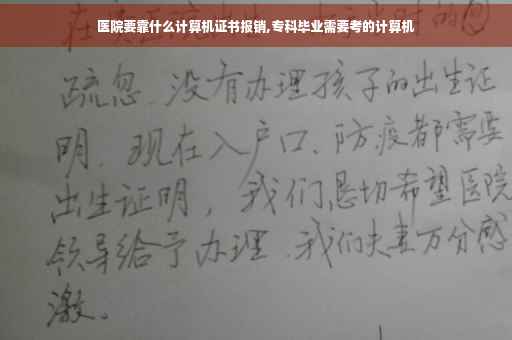 医院要靠什么计算机证书报销,专科毕业需要考的计算机
疏忽、没有办理孩子的出生证
明、现在入户口、防疫都需要
出生证明，我们恳切希望医院
领导给予办理、我们夫妻万分感
激。